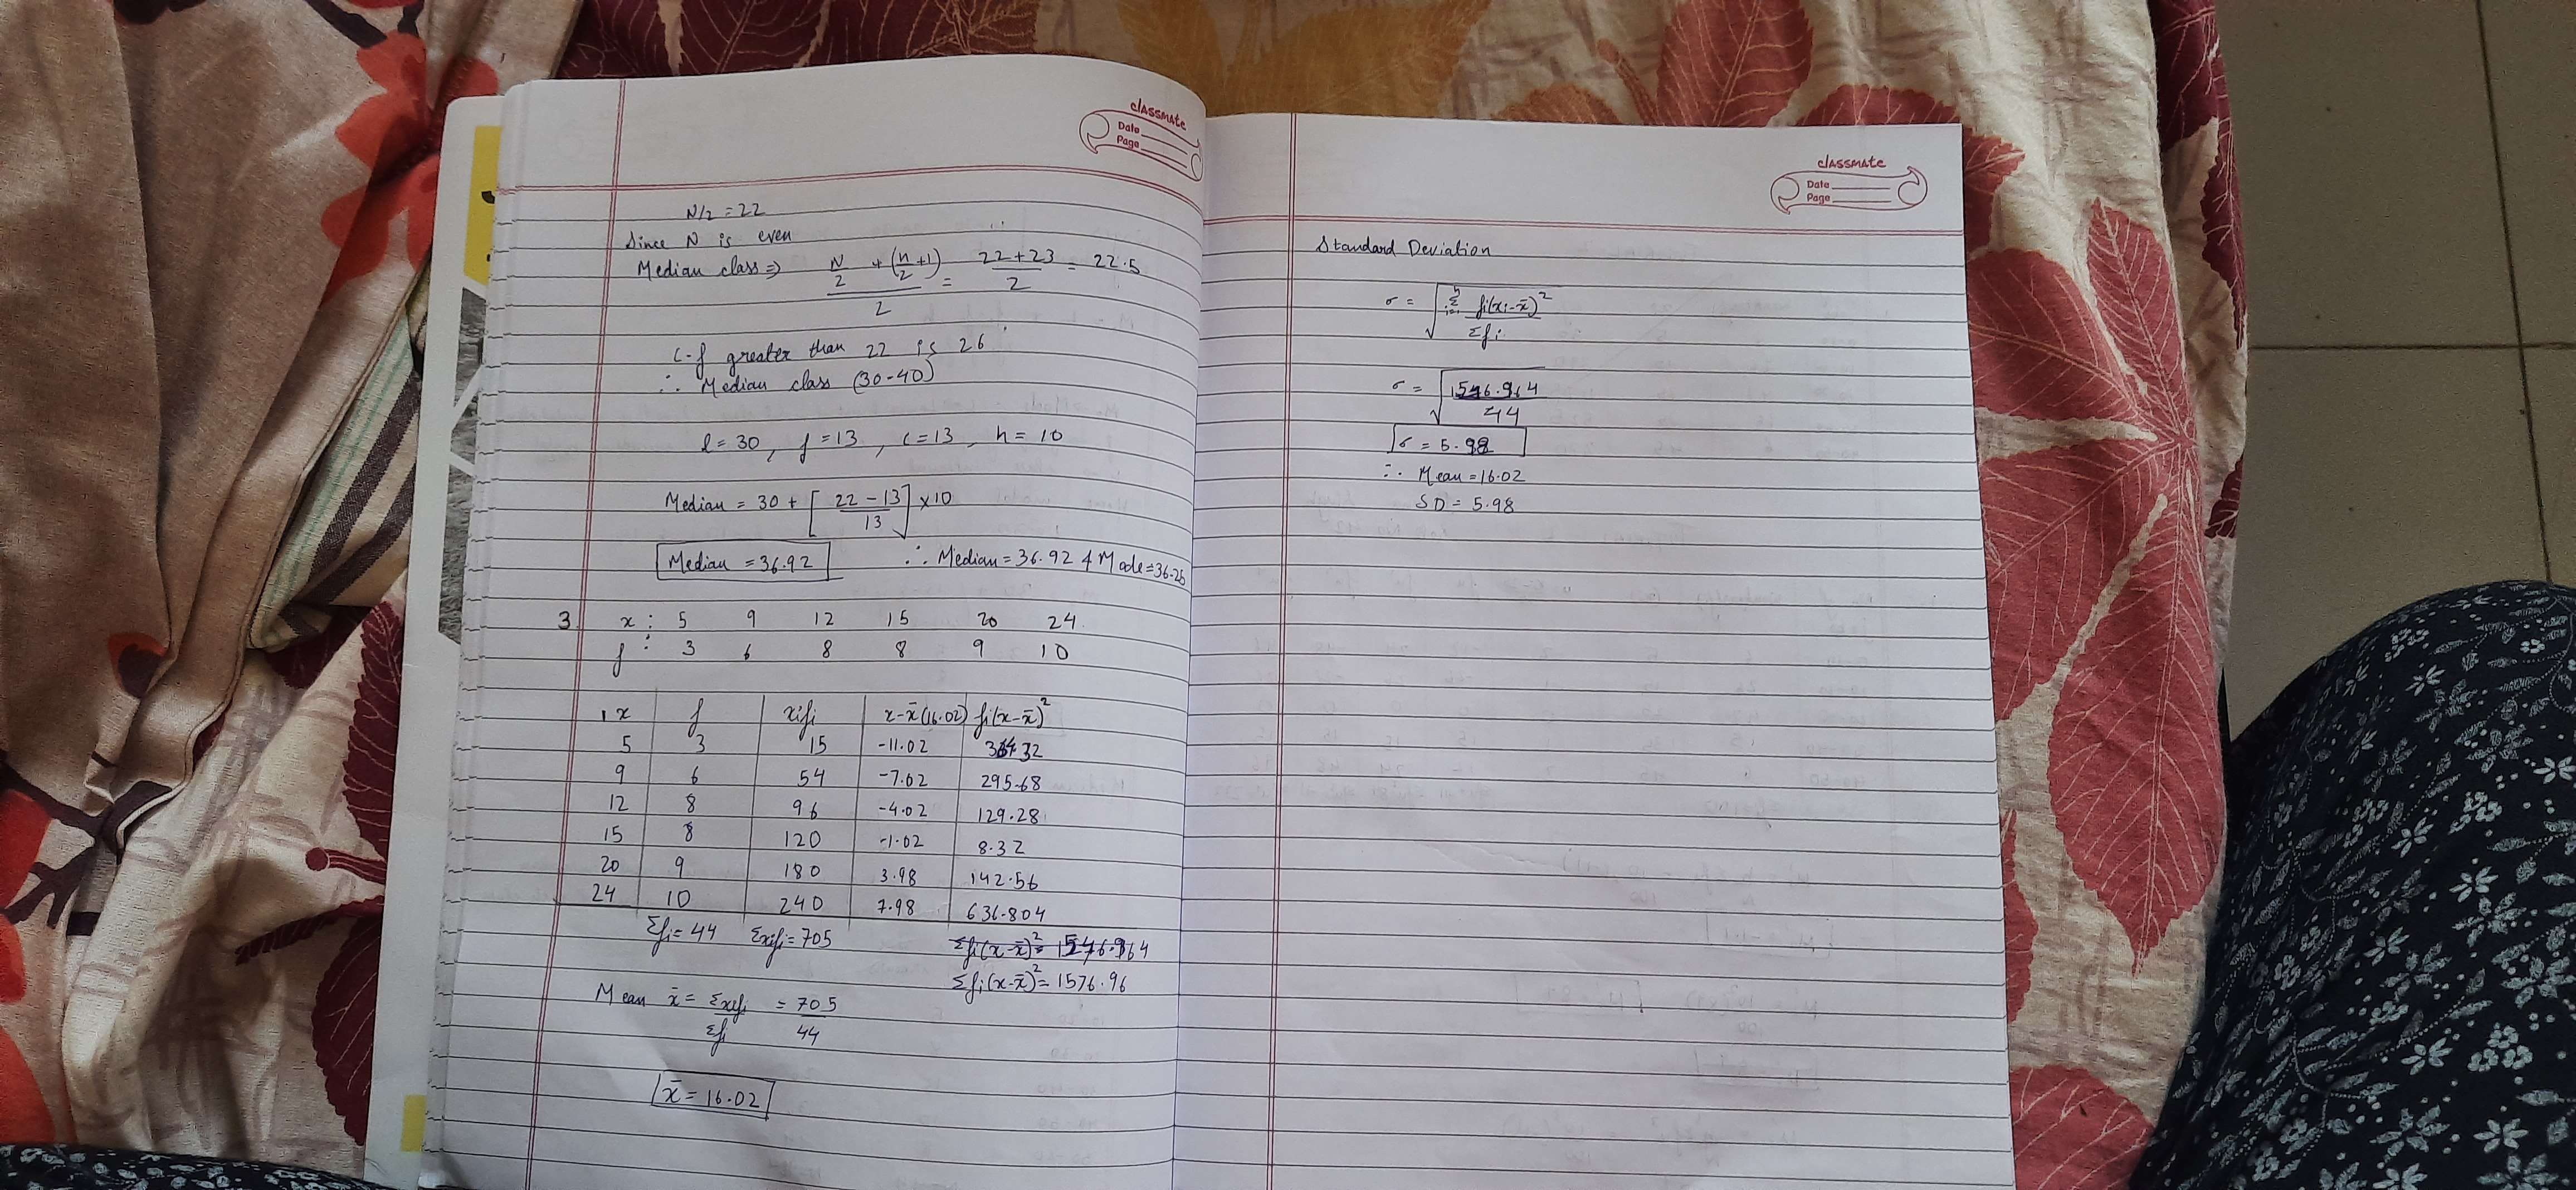 classmate
Date
Page
N/2 = 22
Since N is even
Median class ⇒ N/2 + (n/2 + 1) / 2 = 22 + 23 / 2 = 22.5
c.f greater than 22 is 26
∴ Median class (30-40)
l = 30, f = 13, c = 13, h = 10
Median = 30 + [22 - 13 / 13] × 10
Median = 36.92 ∴ Median = 36.92 & Mode = 36.25
3 x : 5 9 12 15 20 24
f : 3 6 8 8 9 10
x f xifi x-x̄(16.02) fi(x-x̄)²
5 3 15 -11.02 364.32
9 6 54 -7.02 295.68
12 8 96 -4.02 129.28
15 8 120 -1.02 8.32
20 9 180 3.98 142.56
24 10 240 7.98 636.804
Σfi = 44 Σxifi = 705
Σfi(x-x̄)² = 1576.96
Mean x̄ = Σxifi / Σfi = 705 / 44
x̄ = 16.02
classmate
Date
Page
Standard Deviation
σ = √ Σ fi(xi-x̄)² / Σfi
σ = √ 1576.964 / 44
σ = 5.98
∴ Mean = 16.02
SD = 5.98